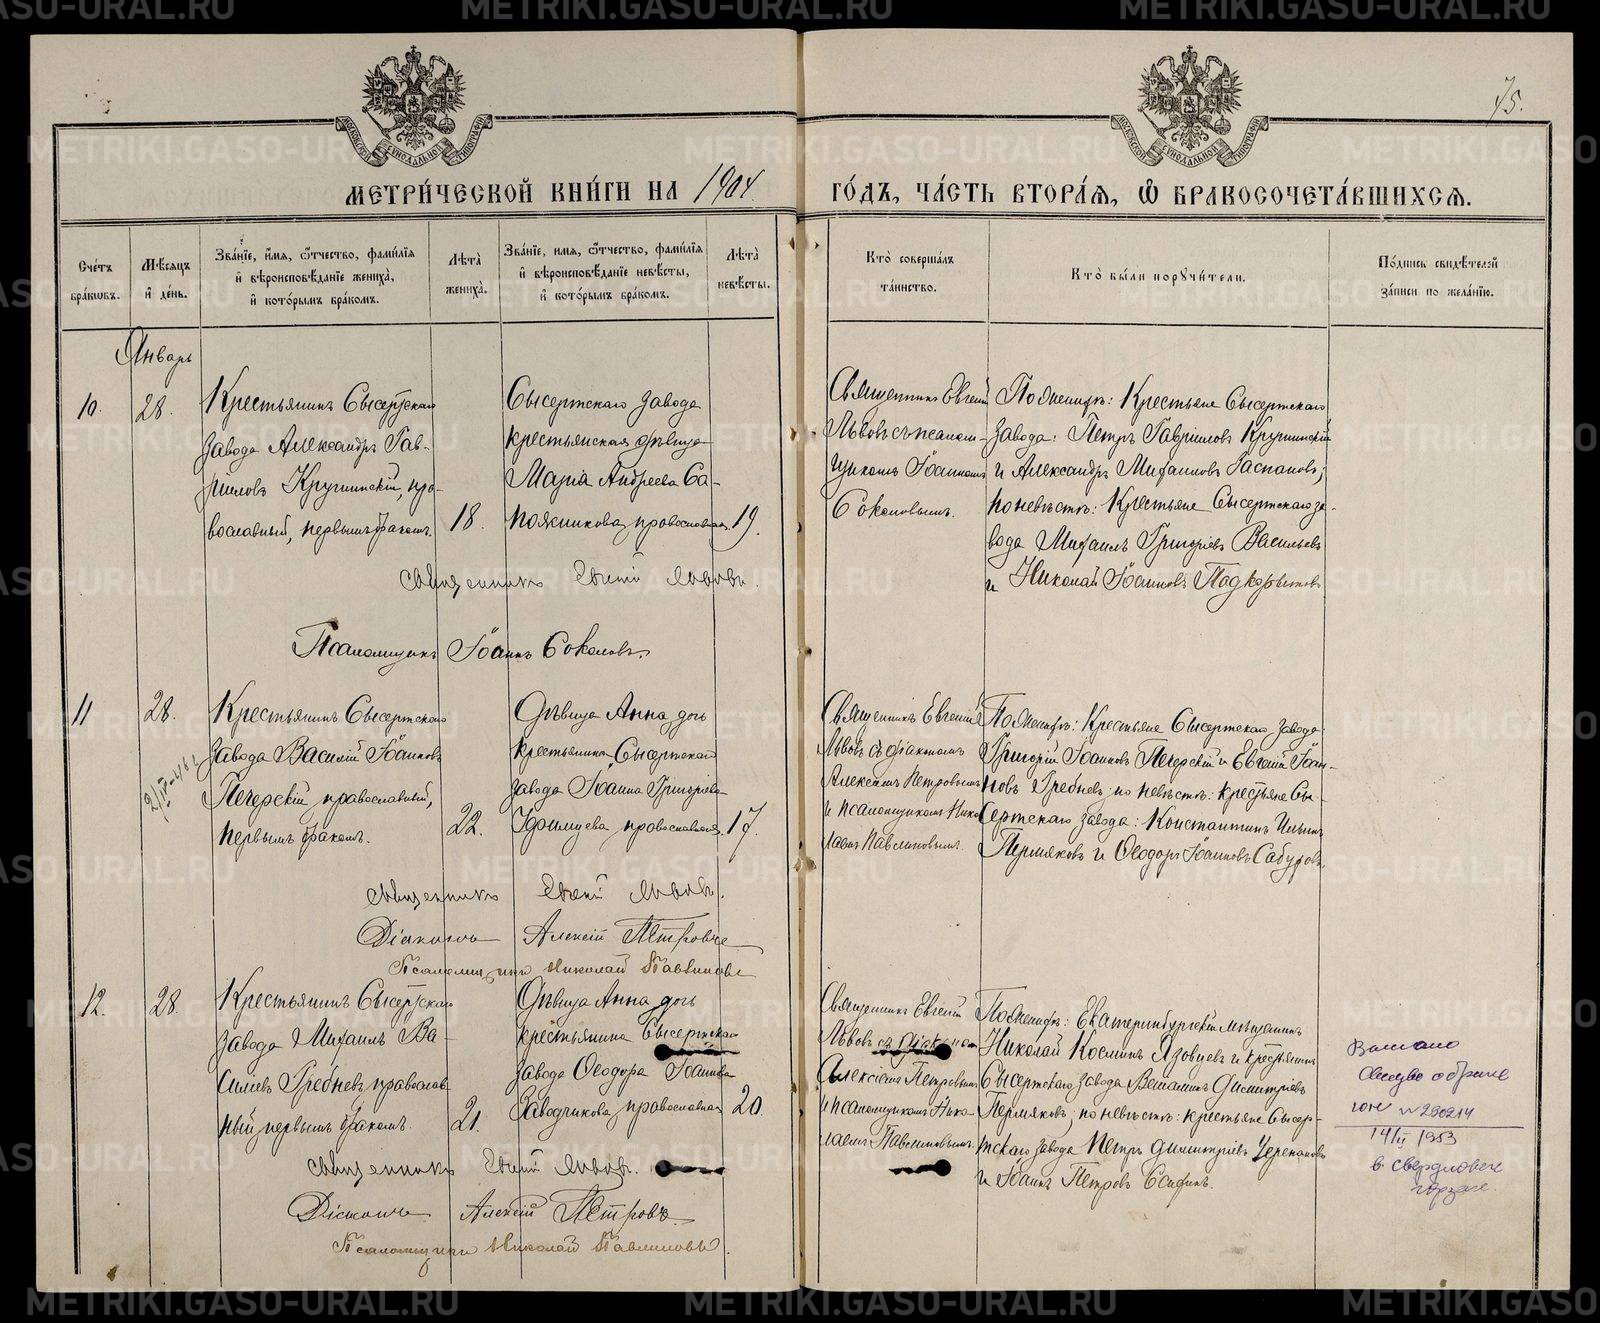 75.
МЕТРИ́ЧЕСКОЙ КНИ́ГИ НА 1904 ГО́ДЪ, ЧА́СТЬ ВТОРА́Я, Ѡ БРАКОСОЧЕТА́ВШИХСЯ.
Сче́тъ бра́кѡвъ.
Мѣ́сяцъ и҆ де́нь.
Зва́нїе, и҆́мя, ѻ҆́тчество, фами́лїя
и҆ вѣроисповѣ́данїе жениха̀,
и҆ кото́рымъ бра́комъ.
Лѣта̀ жениха̀.
Зва́нїе, и҆мя, ѻ҆́тчество, фами́лїя
и҆ вѣроисповѣ́данїе невѣ́сты,
и҆ кото́рымъ бра́комъ.
Лѣта̀ невѣ́сты.
Кто̀ соверша́лъ
та́инство.
Кто̀ бы́ли порꙋчи́тели.
По́дпись свидѣ́телей
за́писи по жела́нїю.
Январь
10.
28.
Крестьянинъ Сысертскаго
завода Александръ Гав-
риловъ Кручинскій, пра-
вославный, первымъ бракомъ.
18.
Сысертскаго завода
крестьянская дѣвица
Марія Андреева Са-
пожникова, православная
19.
Священникъ Евгеній
Львовъ съ псалом-
щикомъ Іоанномъ
Соколовымъ.
По женихѣ: Крестьяне Сысертскаго
завода: Петръ Гавриловъ Кручинскій
и Александръ Михаиловъ
по невѣстѣ: Крестьяне Сысертскаго за-
вода Михаилъ Григоріевъ Васильевъ
и Николай Іоанновъ Подкорытовъ
священникъ Евгеній Львовъ.
Псаломщикъ Іоаннъ Соколовъ.
11
28.
Крестьянинъ Сысертскаго
завода Василій Іоанновъ
Печерскій православный,
первымъ бракомъ.
22.
Дѣвица Анна, дочь
крестьянина Сысертскаго
завода Іоанна Григоріева
православная,
17.
Священникъ Евгеній
Львовъ съ діакономъ
Алексіемъ Петровымъ
и псаломщикомъ Нико-
лаемъ Павлиновымъ.
По женихѣ: Крестьяне Сысертскаго завода
Григорій Іоанновъ Печерскій и Евгеній Іоан-
новъ Гребневъ; по невѣстѣ: крестьяне Сы-
сертскаго завода: Константинъ Ильинъ
Пермяковъ и Ѳеодоръ Іоанновъ Сабуровъ
священникъ Евгеній Львовъ.
Діаконъ Алексій Петровъ
Псаломщикъ Николай Павлиновъ
12.
28.
Крестьянинъ Сысертскаго
завода Михаилъ Ва-
силіевъ Гребневъ православ-
ный, первымъ бракомъ.
21.
Дѣвица Анна дочь
крестьянина Сысертскаго
завода Ѳеодора Іоаннова
Заводчикова, православная
20
Священникъ Евгеній
Львовъ съ діакономъ
Алексіемъ Петровымъ
и псаломщикомъ Нико-
лаемъ Павлиновымъ.
По женихѣ: Екатеринбургскій мѣщанинъ
Николай Косминъ Язовцевъ и крестьянинъ
Сысертскаго завода Веніаминъ Димитріевъ
Пермяковъ; по невѣстѣ: крестьяне Сысер-
тскаго завода Петръ Димитріевъ Черепановъ
и Іоаннъ Петровъ
14/II 1953
в Свердловске
священникъ Евгеній Львовъ.
Діаконъ Алексій Петровъ.
Псаломщикъ Николай Павлиновъ.
METRIKI.GASO-URAL.RU